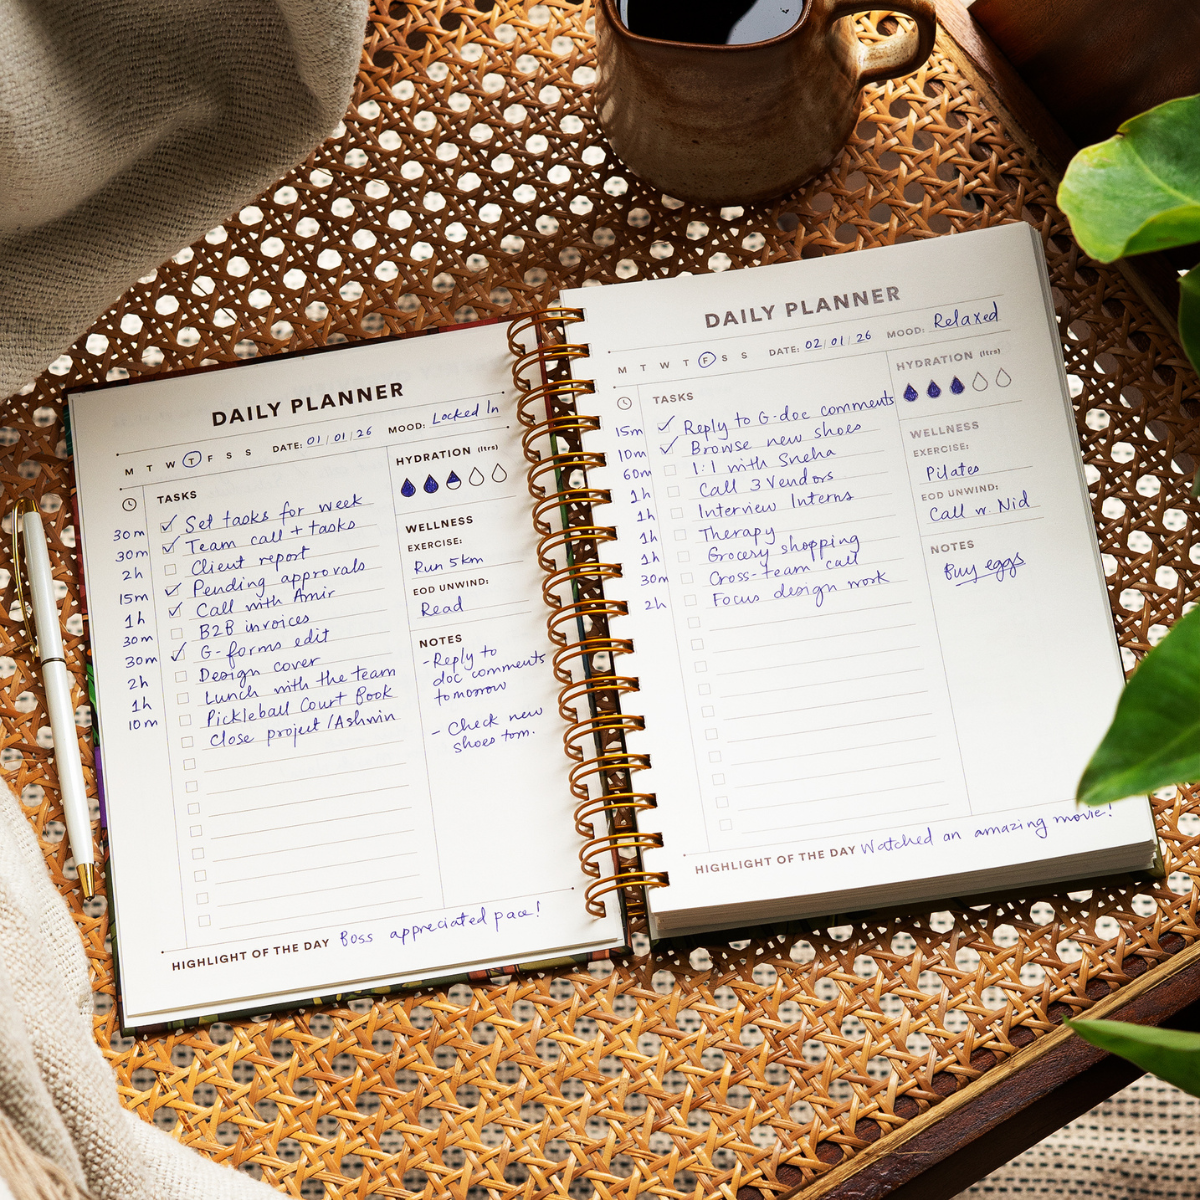 DAILY PLANNER
M T W T F S S DATE: 01/01/26 MOOD: Locked In
TASKS
30m Set tasks for week
30m Team call + tasks
2h Client report
15m Pending approvals
1h Call with Amir
30m B2B invoices
30m G-forms edit
2h Design cover
1h Lunch with the team
10m Pickleball Court Book
Close project/Ashwin
HYDRATION (ltrs)
WELLNESS
EXERCISE:
Run 5km
EOD UNWIND:
Read
NOTES
-Reply to
doc comments
tomorrow
- Check new
shoes tom.
HIGHLIGHT OF THE DAY Boss appreciated pace!
DAILY PLANNER
M T W T F S S DATE: 02/01/26 MOOD: Relaxed
TASKS
15m Reply to G-doc comments
10m Browse new shoes
60m 1:1 with Sneha
1h Call 3 Vendors
1h Interview Interns
1h Therapy
1h Grocery shopping
30m Cross-team call
2h Focus design work
HYDRATION (ltrs)
WELLNESS
EXERCISE:
Pilates
EOD UNWIND:
Call w Nid
NOTES
Buy eggs
HIGHLIGHT OF THE DAY Watched an amazing movie!